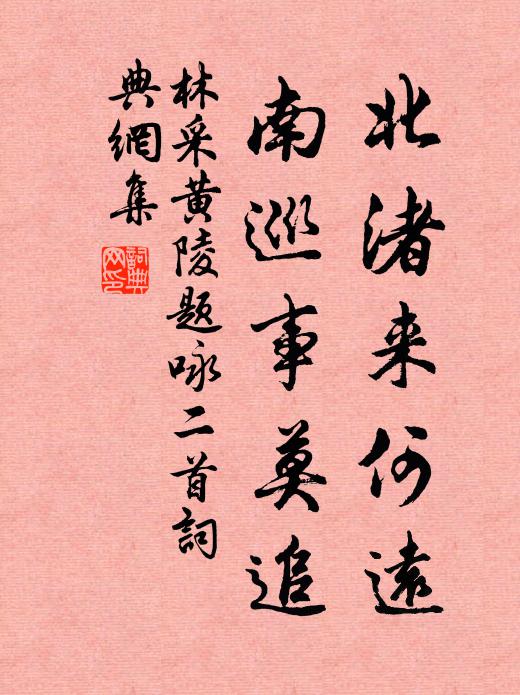 北渚来何遠
南巡事莫追
林采黄陵题咏二首詞
典網集
詞典
网印